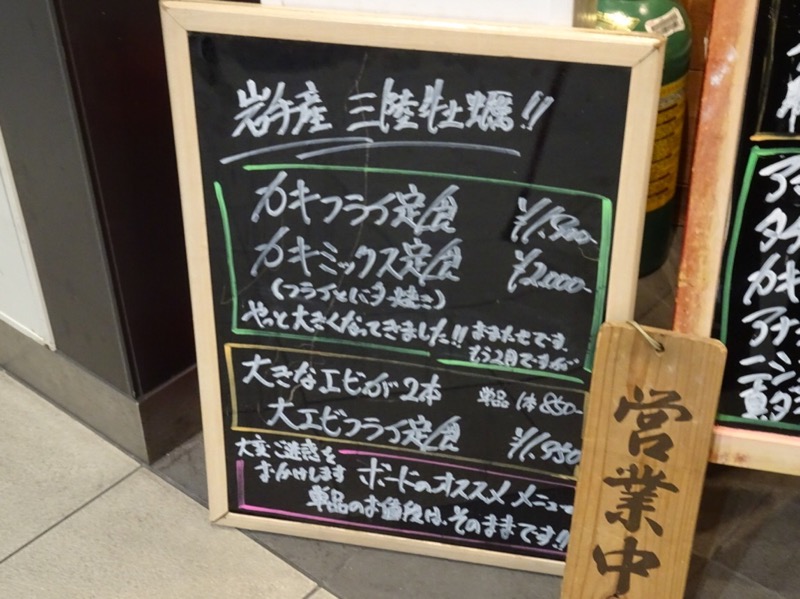 岩手産 三陸牡蠣!!
カキフライ定食 ¥1.900-
カキミックス定食 ¥2.000-
(フライとバター焼き)
やっと大きくなってきました!! おまたせです。
もう2月ですが
大きなエビが2本 単品 1本 850-
大エビフライ定食 ¥1.950
大変ご迷惑を
おかけします ボードのオススメメニュー
単品のお値段は、そのままです!!
営業中
カキ
アナ
ニシ